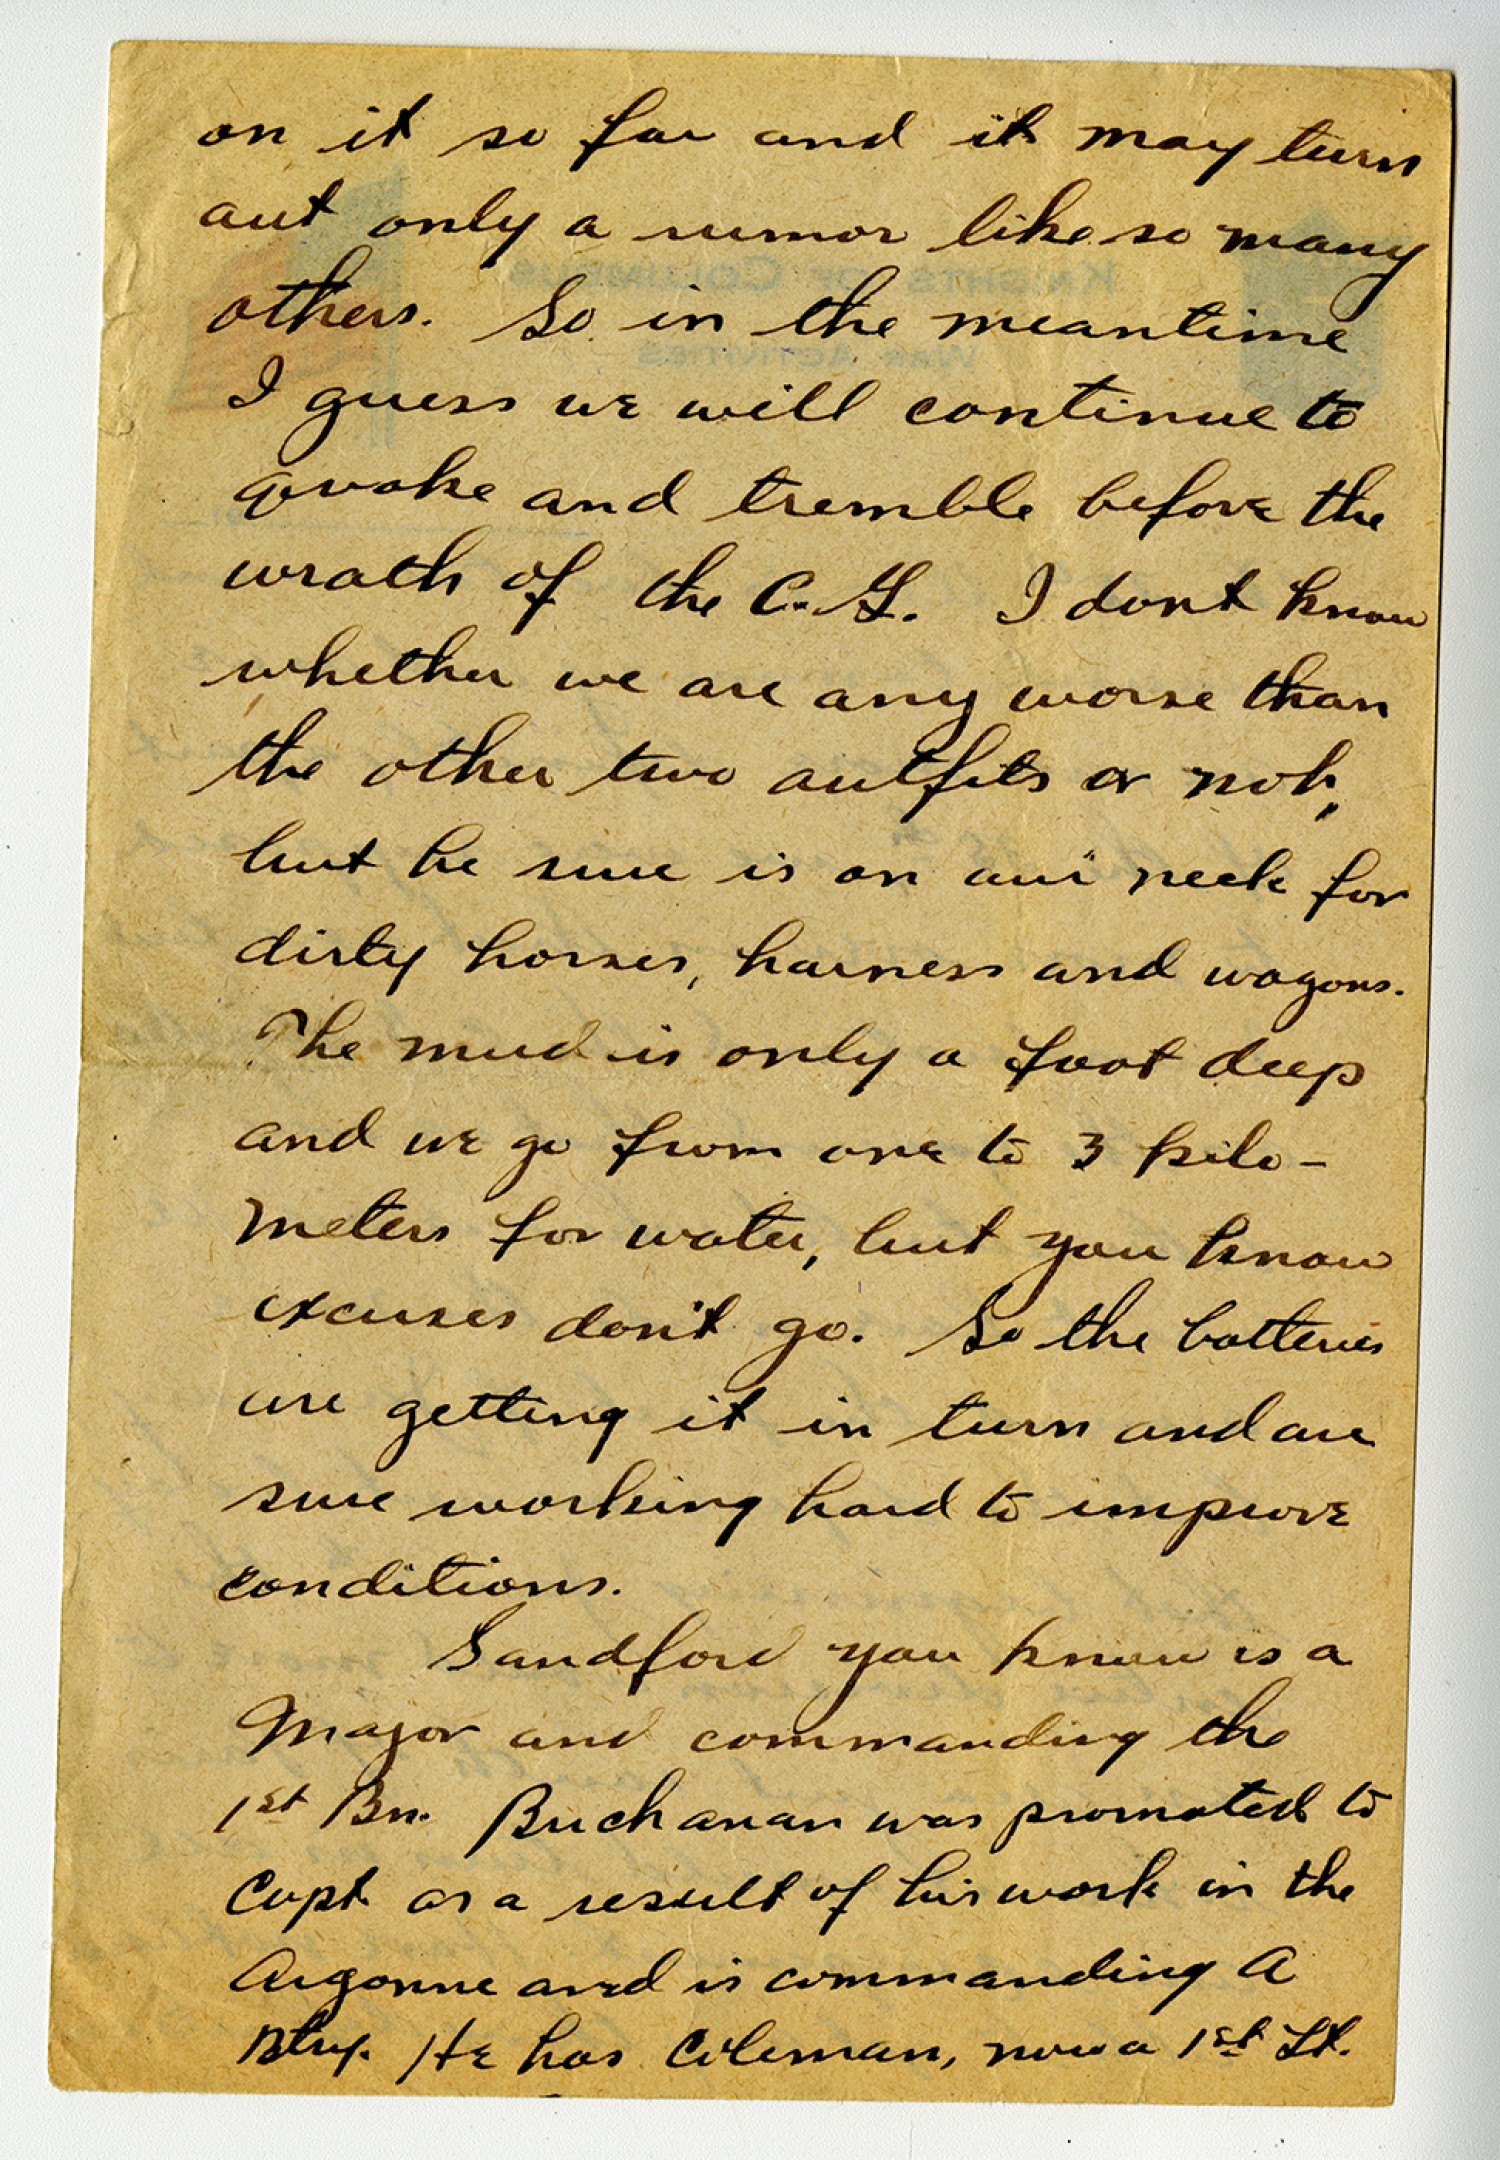 on it so far and it may turn
out only a rumor like so many
others. So in the meantime
I guess we will continue to
quake and tremble before the
wrath of the C.G. I dont know
whether we are any worse than
the other two outfits or not,
but he sure is on our neck for
dirty horses, harness and wagons.
The mud is only a foot deep
and we go from one to 3 kilo-
meters for water, but you know
excuses don't go. So the batteries
are getting it in turn and are
sure working hard to improve
conditions.
Sandford you know is a
Major and commanding the
1st Bn. Buchanan was promoted to
Capt as a result of his work in the
Argonne and is commanding A
Btry. He has Coleman, now a 1st Lt.
KNIGHTS OF COLUMBUS
WAR ACTIVITIES